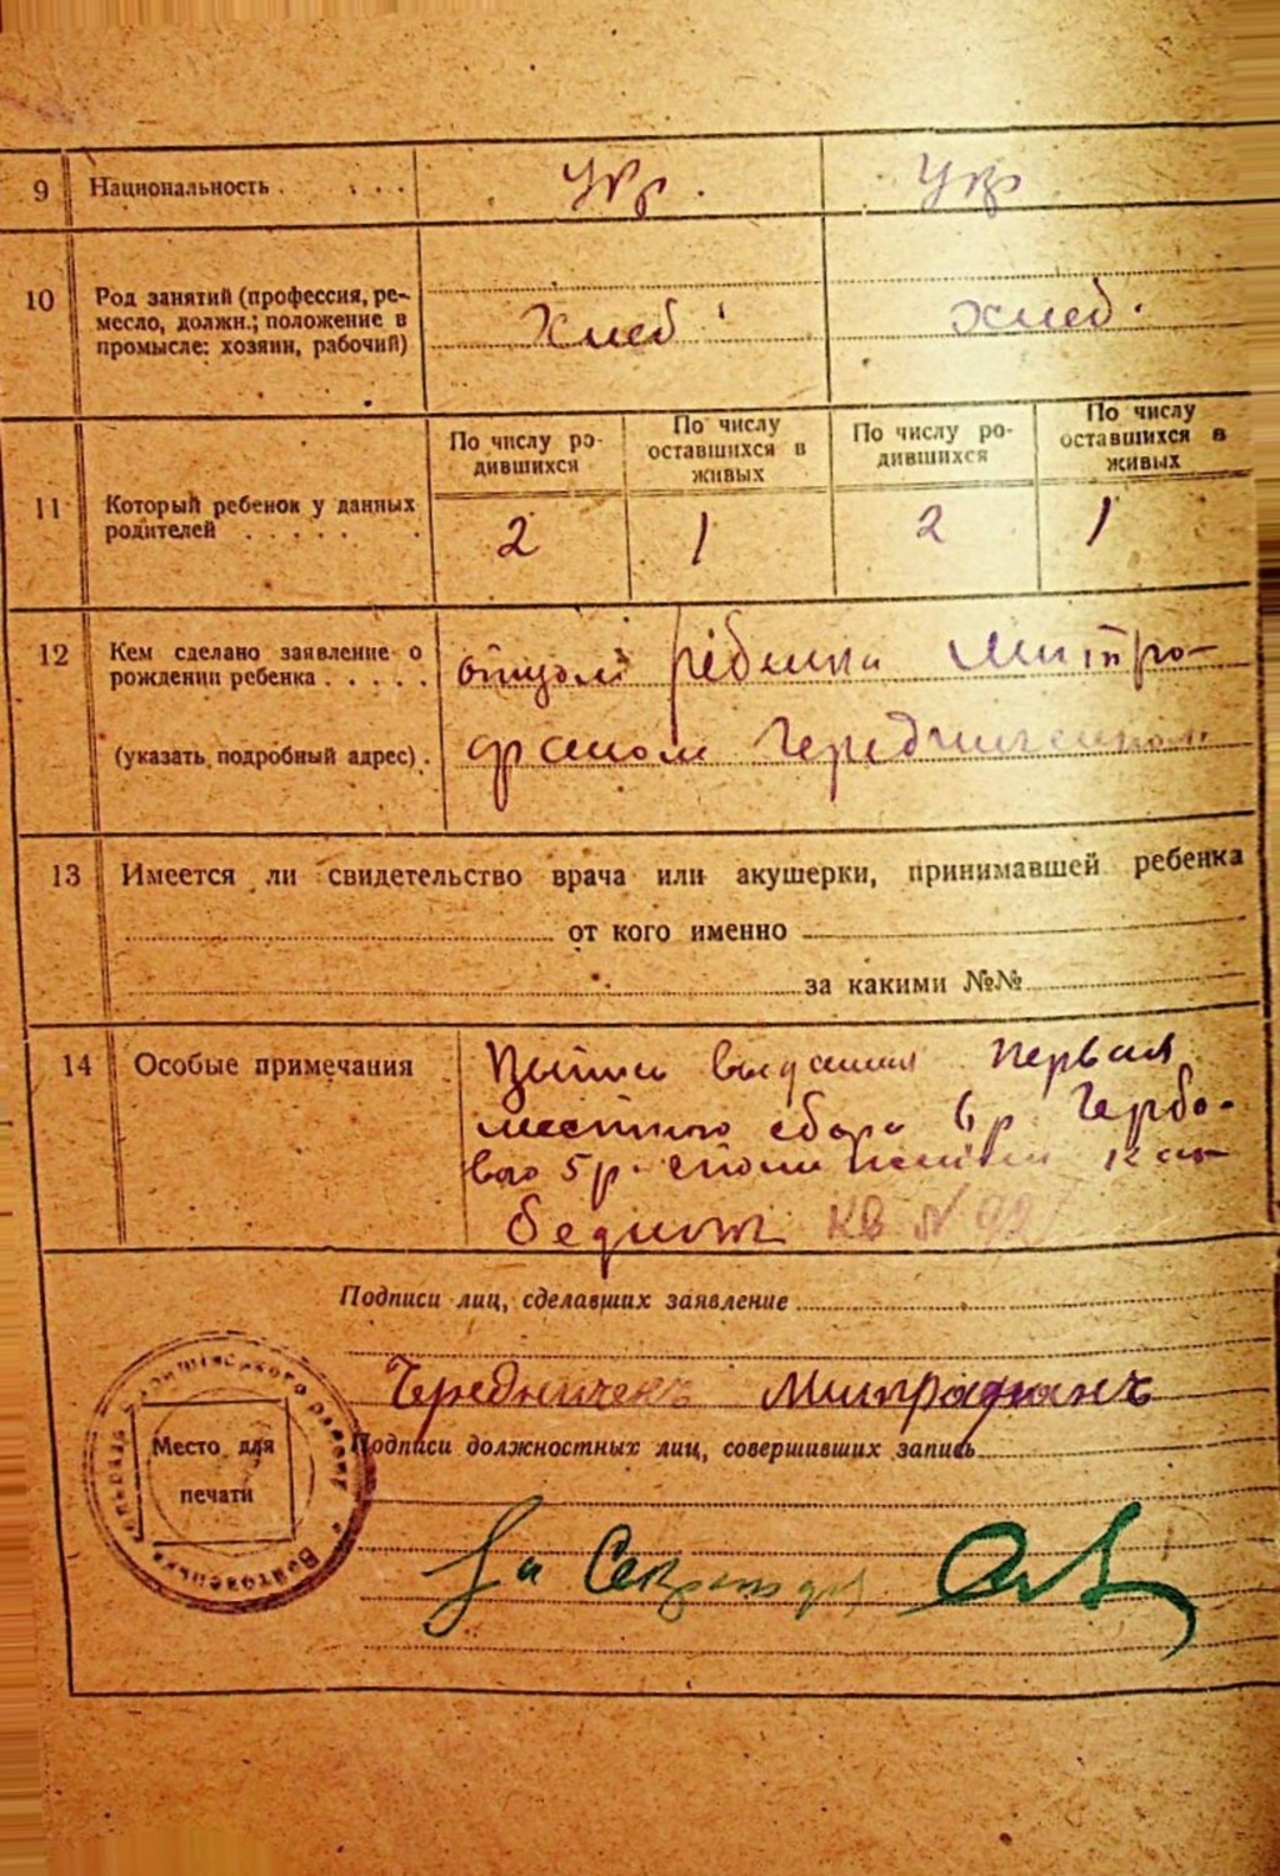 9 Национальность . . . . Укр. Укр
10 Род занятий (профессия, ре-
месло, должн.; положение в
промысле: хозяин, рабочий)
Хлеб Хлеб.
11 Который ребенок у данных
родителей . . . . . .
По числу ро-
дившихся
По числу
оставшихся в
живых
По числу ро-
дившихся
По числу
оставшихся в
живых
2 1 2 1
12 Кем сделано заявление о
рождении ребенка . . . . .
(указать подробный адрес) .
отцом ребенка Митро-
фаном Чередниченком
13 Имеется ли свидетельство врача или акушерки, принимавшей ребенка
от кого именно
за какими №№
14 Особые примечания
выданная первая
местного сбора 6 р Гербо-
вого 5 р.
КВ N 92
Подписи лиц, сделавших заявление
Чередничен Митрафан
Подписи должностных лиц, совершивших запись
Место для
печати
За Секретаря